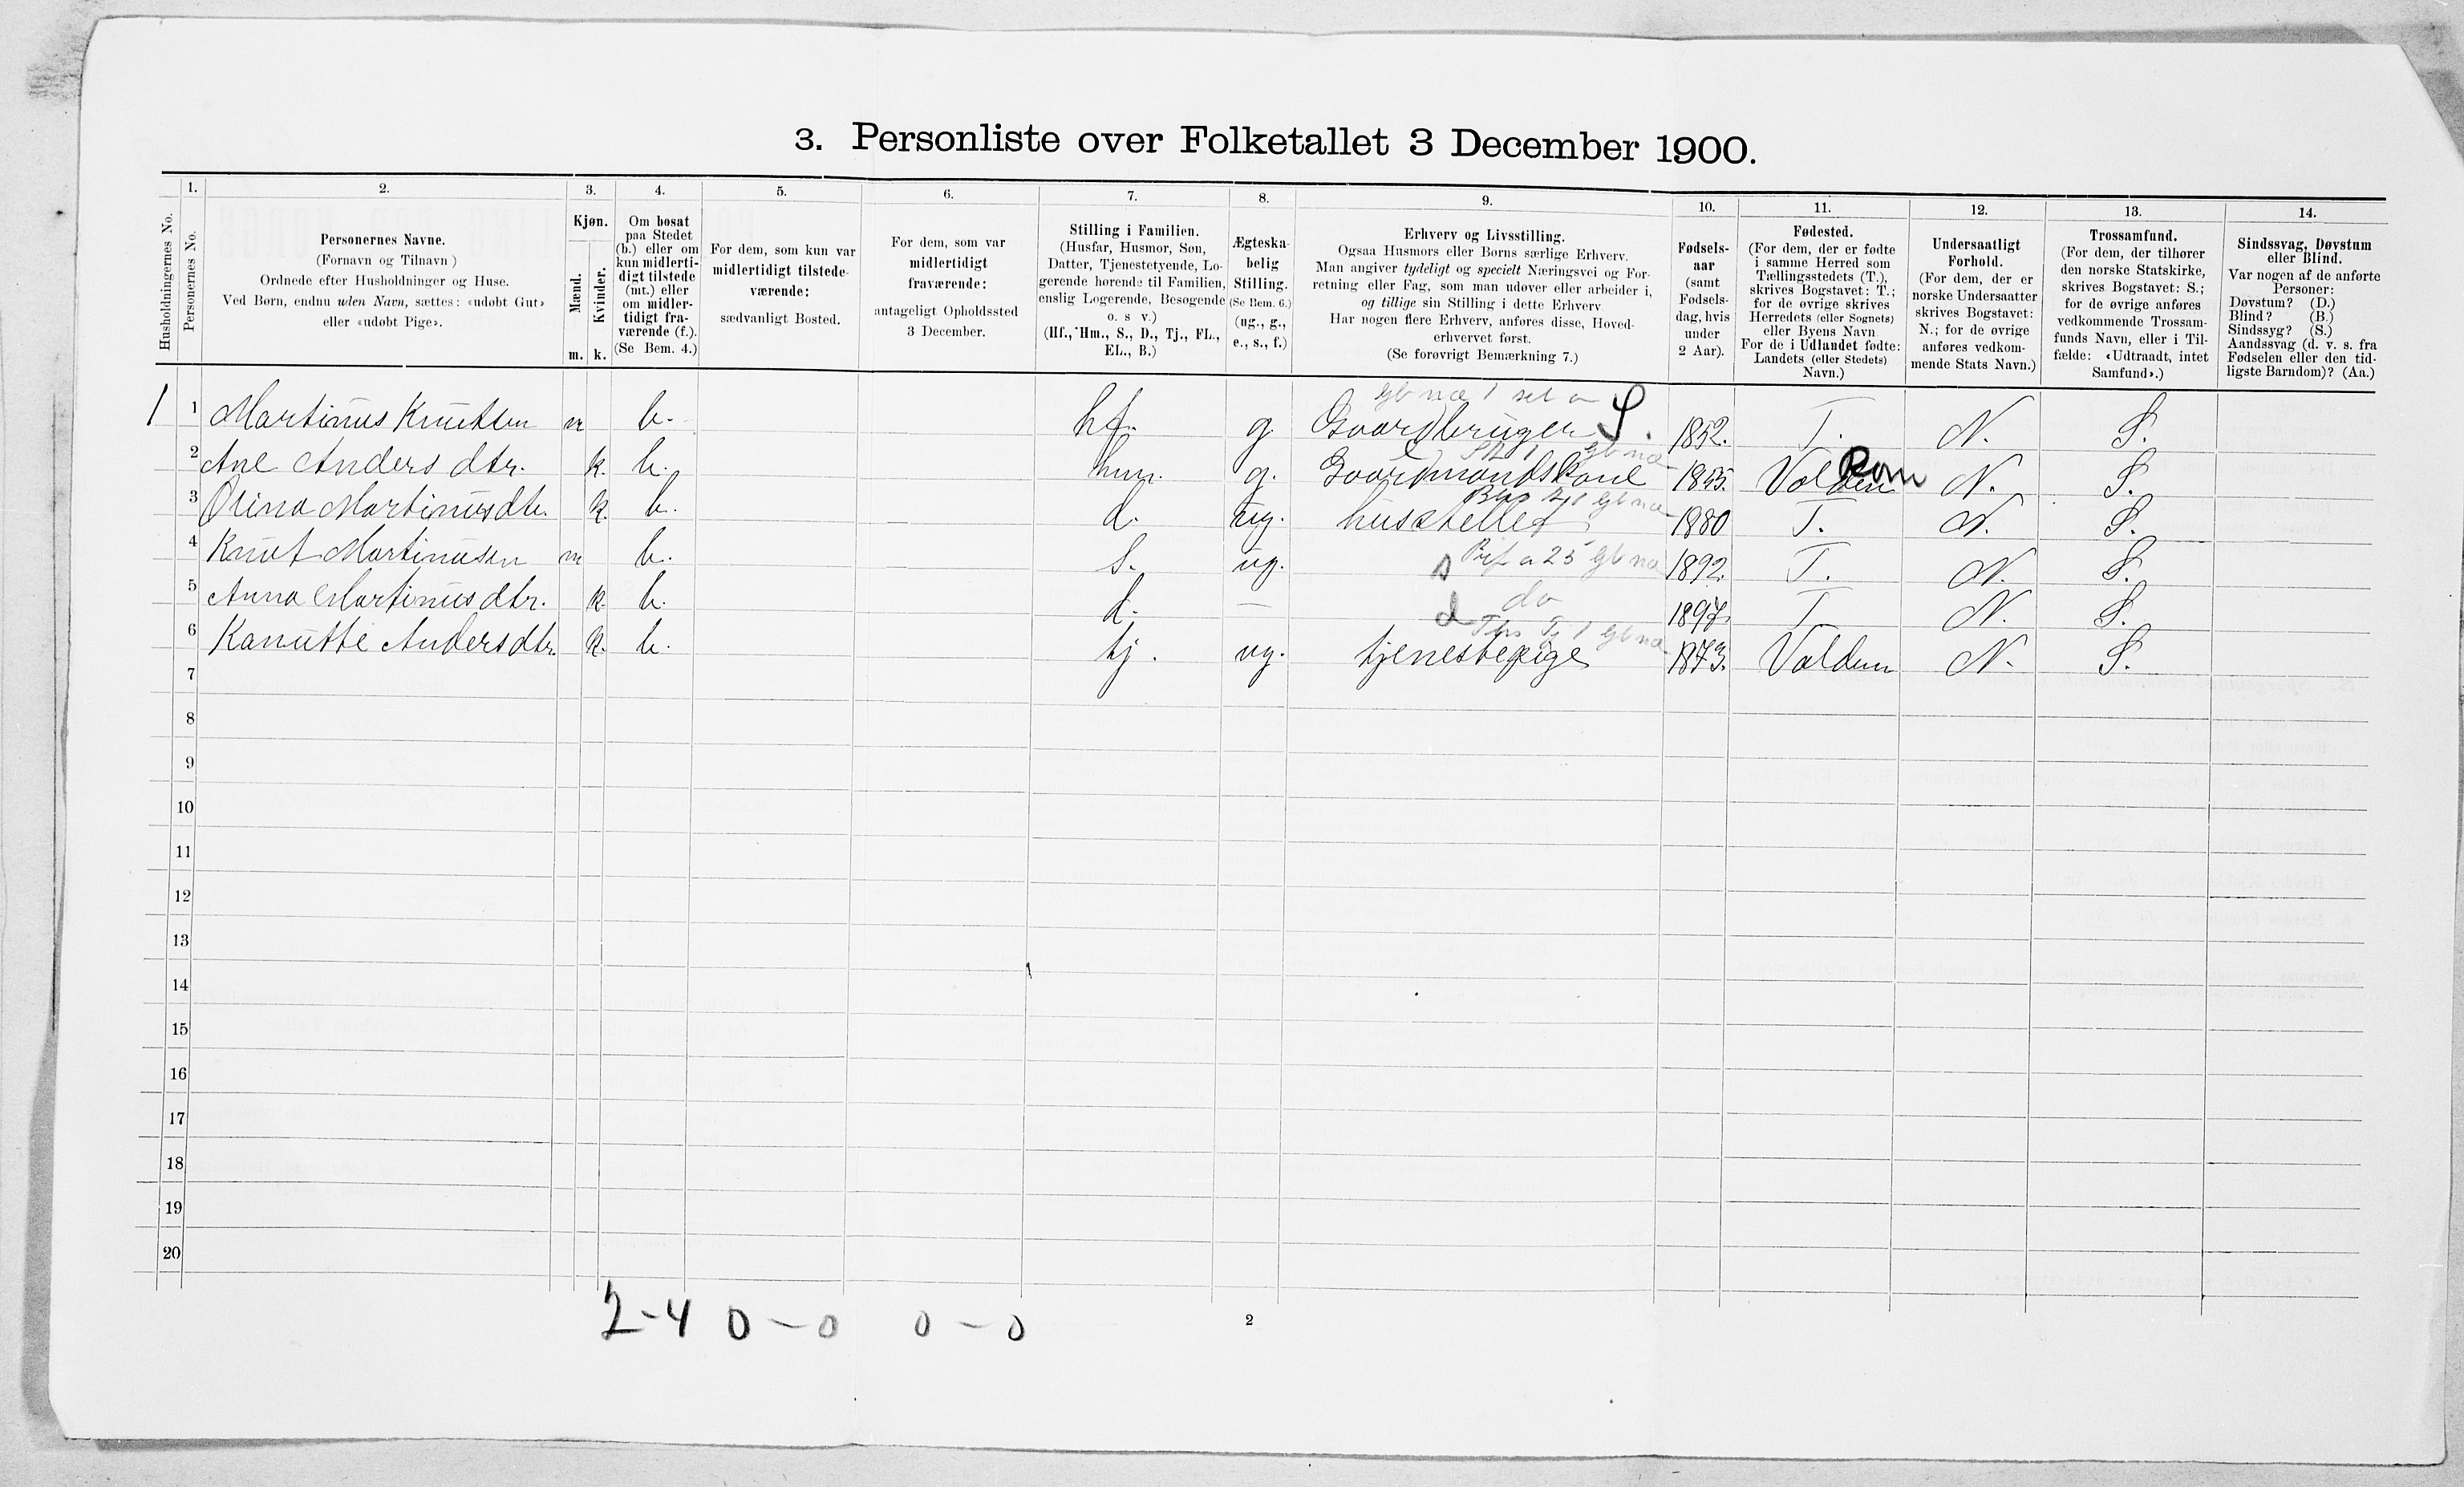 3. Personliste over Folketallet 3 December 1900.
1. 2. 3. 4. 5. 6. 7. 8. 9. 10. 11. 12. 13. 14.
Husholdningernes No.
Personernes No.
Personernes Navne.
(Fornavn og Tilnavn)
Ordnede efter Husholdninger og Huse.
Ved Børn, endnu uden Navn, sættes: «udøbt Gut»
eller «udøbt Pige».
Kjøn.
Mænd.
Kvinder.
m. k.
Om bosat
paa Stedet
(b.) eller om
kun midlerti-
digt tilstede
(mt.) eller
om midler-
tidigt fra-
værende (f.).
(Se Bem. 4.)
For dem, som kun var
midlertidigt tilstede-
værende:
sædvanligt Bosted.
For dem, som var
midlertidigt
fraværende:
antageligt Opholdssted
3 December.
Stilling i Familien.
(Husfar, Husmor, Søn,
Datter, Tjenestetyende, Lo-
gerende hørende til Familien,
enslig Logerende, Besøgende
o. s v.)
(Hf., Hm., S., D., Tj., FL.,
EL., B.)
Ægteska-
belig
Stilling.
(Se Bem. 6.)
(ug., g.,
e., s., f.)
Erhverv og Livsstilling.
Ogsaa Husmors eller Børns særlige Erhverv.
Man angiver tydeligt og specielt Næringsvei og For-
retning eller Fag, som man udøver eller arbeider i,
og tillige sin Stilling i dette Erhverv.
Har nogen flere Erhverv, anføres disse, Hoved-
erhvervet først.
(Se forøvrigt Bemærkning 7.)
Fødsels-
aar
(samt
Fødsels-
dag, hvis
under
2 Aar).
Fødested.
(For dem, der er fødte
i samme Herred som
Tællingsstedets (T.),
skrives Bogstavet: T.;
for de øvrige skrives
Herredets (eller Sognets)
eller Byens Navn.
For de i Udlandet fødte:
Landets (eller Stedets)
Navn.)
Undersaatligt
Forhold.
(For dem, der er
norske Undersaatter
skrives Bogstavet:
N.; for de øvrige
anføres vedkom-
mende Stats Navn.)
Trossamfund.
(For dem, der tilhører
den norske Statskirke,
skrives Bogstavet: S.;
for de øvrige anføres
vedkommende Trossam-
funds Navn, eller i Til-
fælde: «Udtraadt, intet
Samfund».)
Sindssvag, Døvstum
eller Blind.
Var nogen af de anførte
Personer:
Døvstum? (D.)
Blind? (B.)
Sindssyg? (S.)
Aandssvag (d. v. s. fra
Fødselen eller den tid-
ligste Barndom)? (Aa.)
1 1 Martinus Knutsen m b. hf. g Gaardbruger S. 1852. T. N. S.
2 Ane Anders dtr. k. b. hm. g. Gaardmandskone 1855. Valden N. S.
3 Olina Martinusdtr. k. b. d. ug. husstellet 1880 T. N. S.
4 Knut Martinusen m b. s. ug. s 1892. T. N. S.
5 Anna Martinusdtr. k. b. d. — d do 1897. T. N. S.
6 Kanutte Andersdtr. k. b. tj. ug. tjenestepige 1873. Valden N. S.
7
8
9
10
11
12
13
14
15
16
17
18
19
20
2-4 0-0 0-0
2